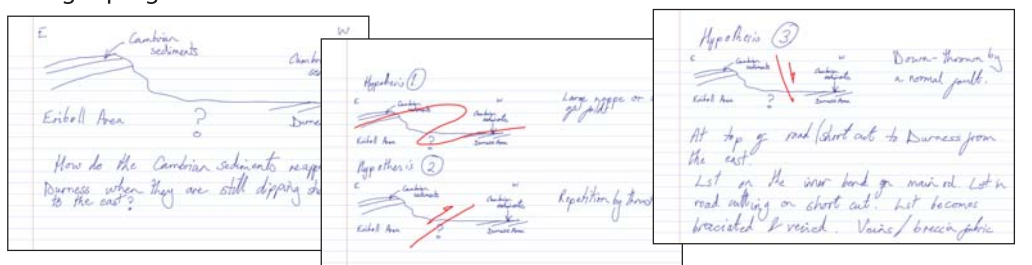 E W
Cambrian
sediments
Eriboll Area
?
How do the Cambrian sediments
Durness when they are still dipping
to the east?
Hypothesis ①
E W
Cambrian
sediments
Cambrian
sediments
Eriboll Area ? Durness Area
Large nappe or
Hypothesis ②
E W
Cambrian
sediments
Cambrian
sediments
Eriboll Area ? Durness Area
Repetition by
Hypothesis ③
E W
Cambrian
sediments
Cambrian
sediments
Eriboll Area ? Durness Area
Down-thrown by
a normal fault.
At top of road/short cut to Durness from
the east.
Lst on the inner bend of main rd. Lst in
road cutting on short cut. Lst becomes
brecciated & veined. Veins/breccia fabric